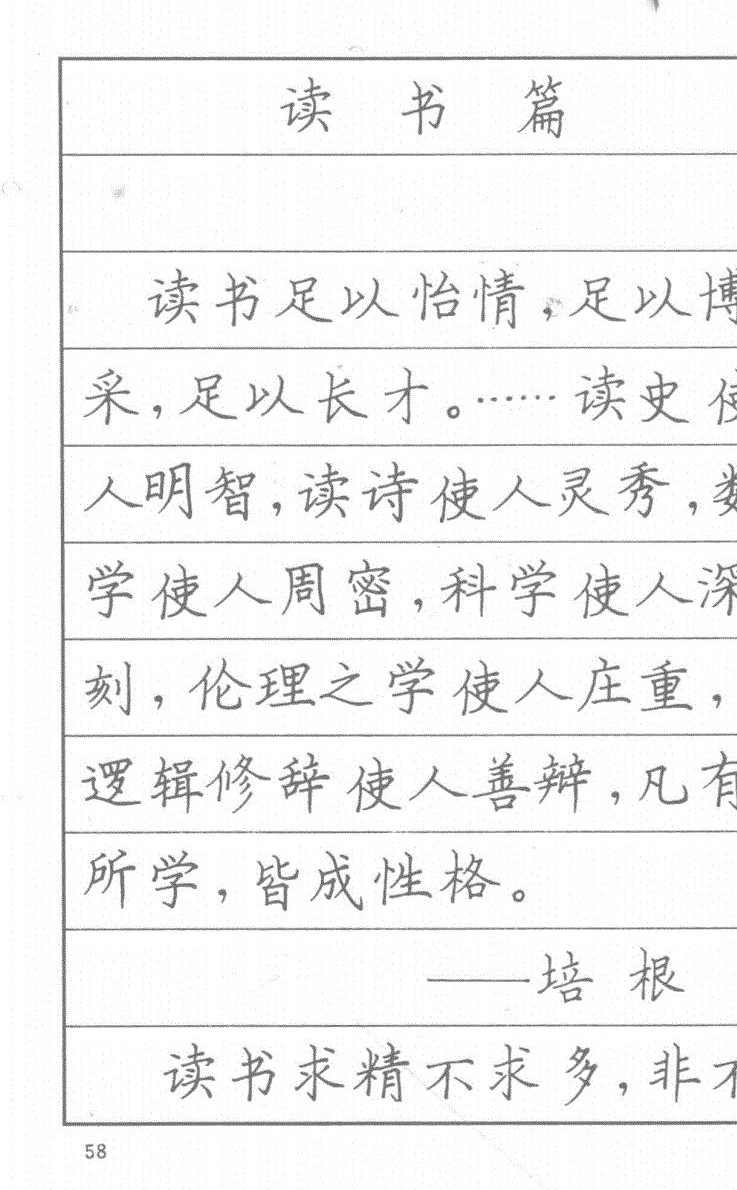 读书篇
读书足以怡情,足以博
采,足以长才。……读史使
人明智,读诗使人灵秀,数
学使人周密,科学使人深
刻,伦理之学使人庄重,
逻辑修辞使人善辩,凡有
所学,皆成性格。
——培根
读书求精不求多,非不
58